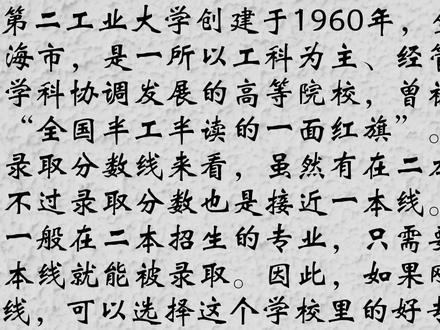 第二工业大学创建于1960年，
海市，是一所以工科为主、经管
学科协调发展的高等院校，曾被
“全国半工半读的一面红旗”。
录取分数线来看，虽然有在二本
不过录取分数也是接近一本线。
一般在二本招生的专业，只需要
本线就能被录取。因此，如果刚
线，可以选择这个学校里的好专